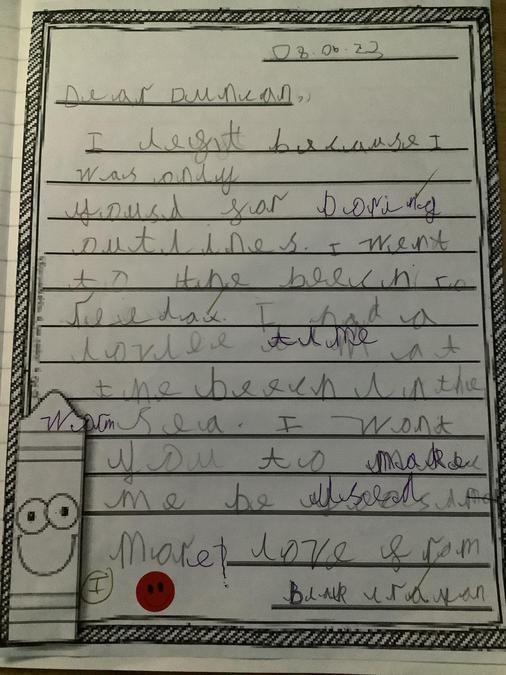 08.06.23
Dear Duncan,
I leght because I
was only
yousd for boring
outlines. I went
to the beech to
reelax. I had a
lovlee time at
the beech in the
warm Sea. I wont
you to make
me be used
More! love from
(I)